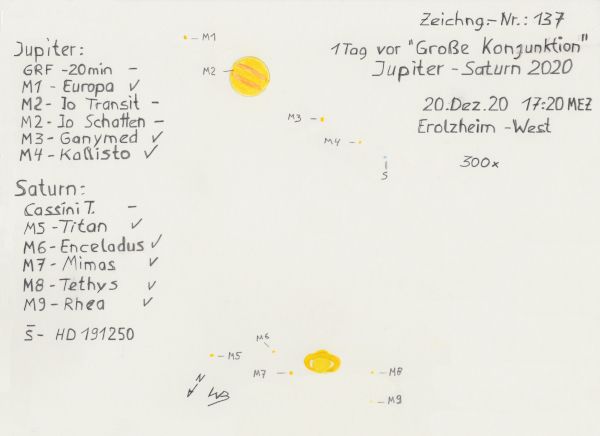 Zeichng.-Nr.: 137
1 Tag vor "Große Konjunktion"
Jupiter - Saturn 2020
20.Dez.20 17:20 MEZ
Erolzheim - West
300x
Jupiter:
GRF -20min –
M1 - Europa ✓
M2 - Io Transit –
M2 - Io Schatten –
M3 - Ganymed ✓
M4 - Kallisto ✓
Saturn:
Cassini T. –
M5 - Titan ✓
M6 - Enceladus ✓
M7 - Mimas ✓
M8 - Tethys ✓
M9 - Rhea ✓
s̄ - HD 191250
M1
M2
M3
M4
S
M6
M5
M7
M8
M9
N